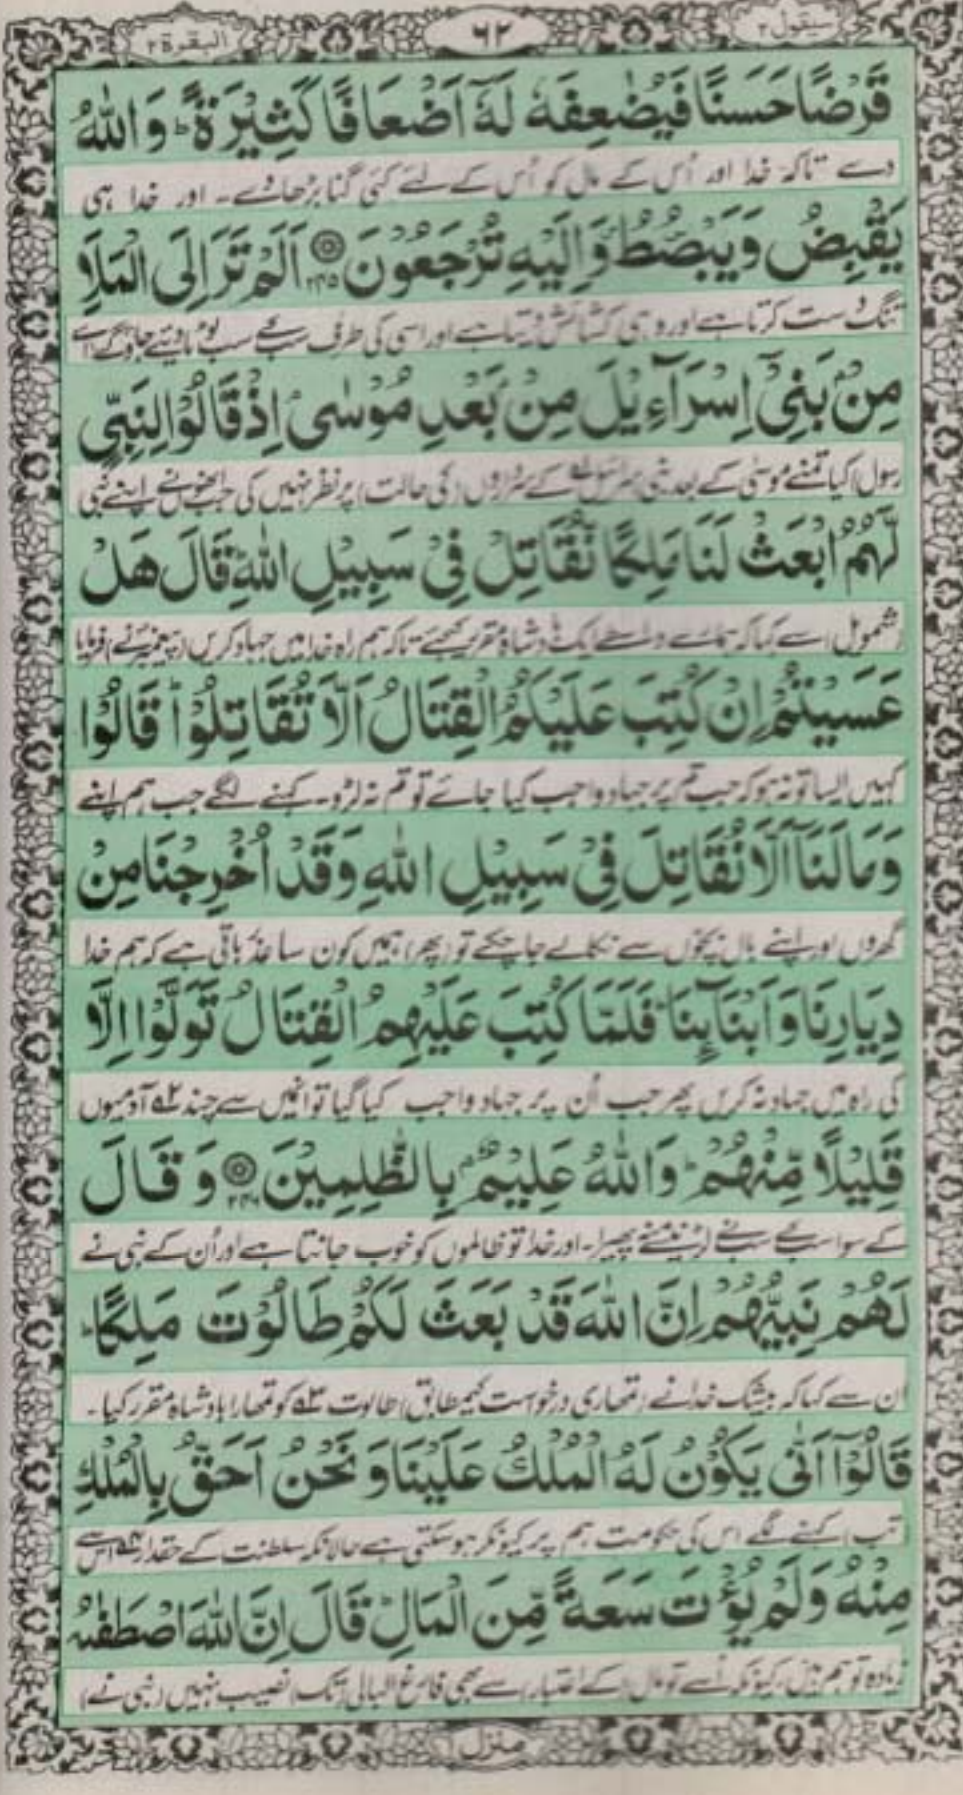 سیقول ۲
۶۲
البقرة ۲
قَرْضًا حَسَنًا فَيُضٰعِفَهٗ لَهٗۤ اَضْعَافًا كَثِيْرَةً ؕ وَاللّٰهُ
دے تاکہ خدا اور اُس کے مال کو اُس کے لئے کئی گنا بڑھا دے۔ اور خدا ہی
يَقْبِضُ وَيَبْصُۜطُ وَاِلَيْهِ تُرْجَعُوْنَ ۝۲۴۵ اَلَمْ تَرَ اِلَى الْمَلَاِ
تنگدست کرتا ہے اور وہی کشائش دیتا ہے اور اسی کی طرف سب کے سب لوٹا دیئے جاؤ گے اے
مِنْۢ بَنِيْۤ اِسْرَآءِيْلَ مِنْۢ بَعْدِ مُوْسٰى ۘ اِذْ قَالُوْا لِنَبِيٍّ
رسول کیا تمنے موسیٰ کے بعد بنی اسرائیل کے سرداروں (کی حالت) پر نظر نہیں کی جب انھوں نے اپنے نبی
لَّهُمُ ابْعَثْ لَنَا مَلِكًا نُّقَاتِلْ فِيْ سَبِيْلِ اللّٰهِ ؕ قَالَ هَلْ
(شمویل) سے کہا کہ ہمارے واسطے ایک بادشاہ مقرر کیجئے تاکہ ہم راہ خدا میں جہاد کریں (پیغمبر نے) فرمایا
عَسَيْتُمْ اِنْ كُتِبَ عَلَيْكُمُ الْقِتَالُ اَلَّا تُقَاتِلُوْا ؕ قَالُوْا
کہیں ایسا تو نہ ہو کہ جب تم پر جہاد واجب کیا جائے تو تم نہ لڑو۔ کہنے لگے جب ہم اپنے
وَمَا لَنَاۤ اَلَّا نُقَاتِلَ فِيْ سَبِيْلِ اللّٰهِ وَقَدْ اُخْرِجْنَا مِنْ
گھروں اور اپنے بال بچوں سے نکالے جا چکے تو (پھر) ہمیں کون سا عذر باقی ہے کہ ہم خدا
دِيَارِنَا وَاَبْنَآئِنَا ؕ فَلَمَّا كُتِبَ عَلَيْهِمُ الْقِتَالُ تَوَلَّوْا اِلَّا
کی راہ میں جہاد نہ کریں پھر جب اُن پر جہاد واجب کیا گیا تو انمیں سے چند آدمیوں
قَلِيْلًا مِّنْهُمْ ؕ وَاللّٰهُ عَلِيْمٌۢ بِالظّٰلِمِيْنَ ۝۲۴۶ وَقَالَ
کے سوا سب کے سب نے لڑنے سے منہ پھیرا۔ اور خدا تو ظالموں کو خوب جانتا ہے اور اُن کے نبی نے
لَهُمْ نَبِيُّهُمْ اِنَّ اللّٰهَ قَدْ بَعَثَ لَكُمْ طَالُوْتَ مَلِكًا ؕ
ان سے کہا کہ بیشک خدا نے (تمھاری درخواست کے مطابق) طالوت کو تمھارا بادشاہ مقرر کیا۔
قَالُوْۤا اَنّٰى يَكُوْنُ لَهُ الْمُلْكُ عَلَيْنَا وَنَحْنُ اَحَقُّ بِالْمُلْكِ
تب کہنے لگے اس کی حکومت ہم پر کیونکر ہو سکتی ہے حالانکہ سلطنت کے حقدار اس سے
مِنْهُ وَلَمْ يُؤْتَ سَعَةً مِّنَ الْمَالِ ؕ قَالَ اِنَّ اللّٰهَ اصْطَفٰىهُ
زیادہ تو ہم ہیں کیونکہ اُسے تو مال کے اعتبار سے بھی فارغ البالی تک نصیب نہیں (نبی نے)
منزل